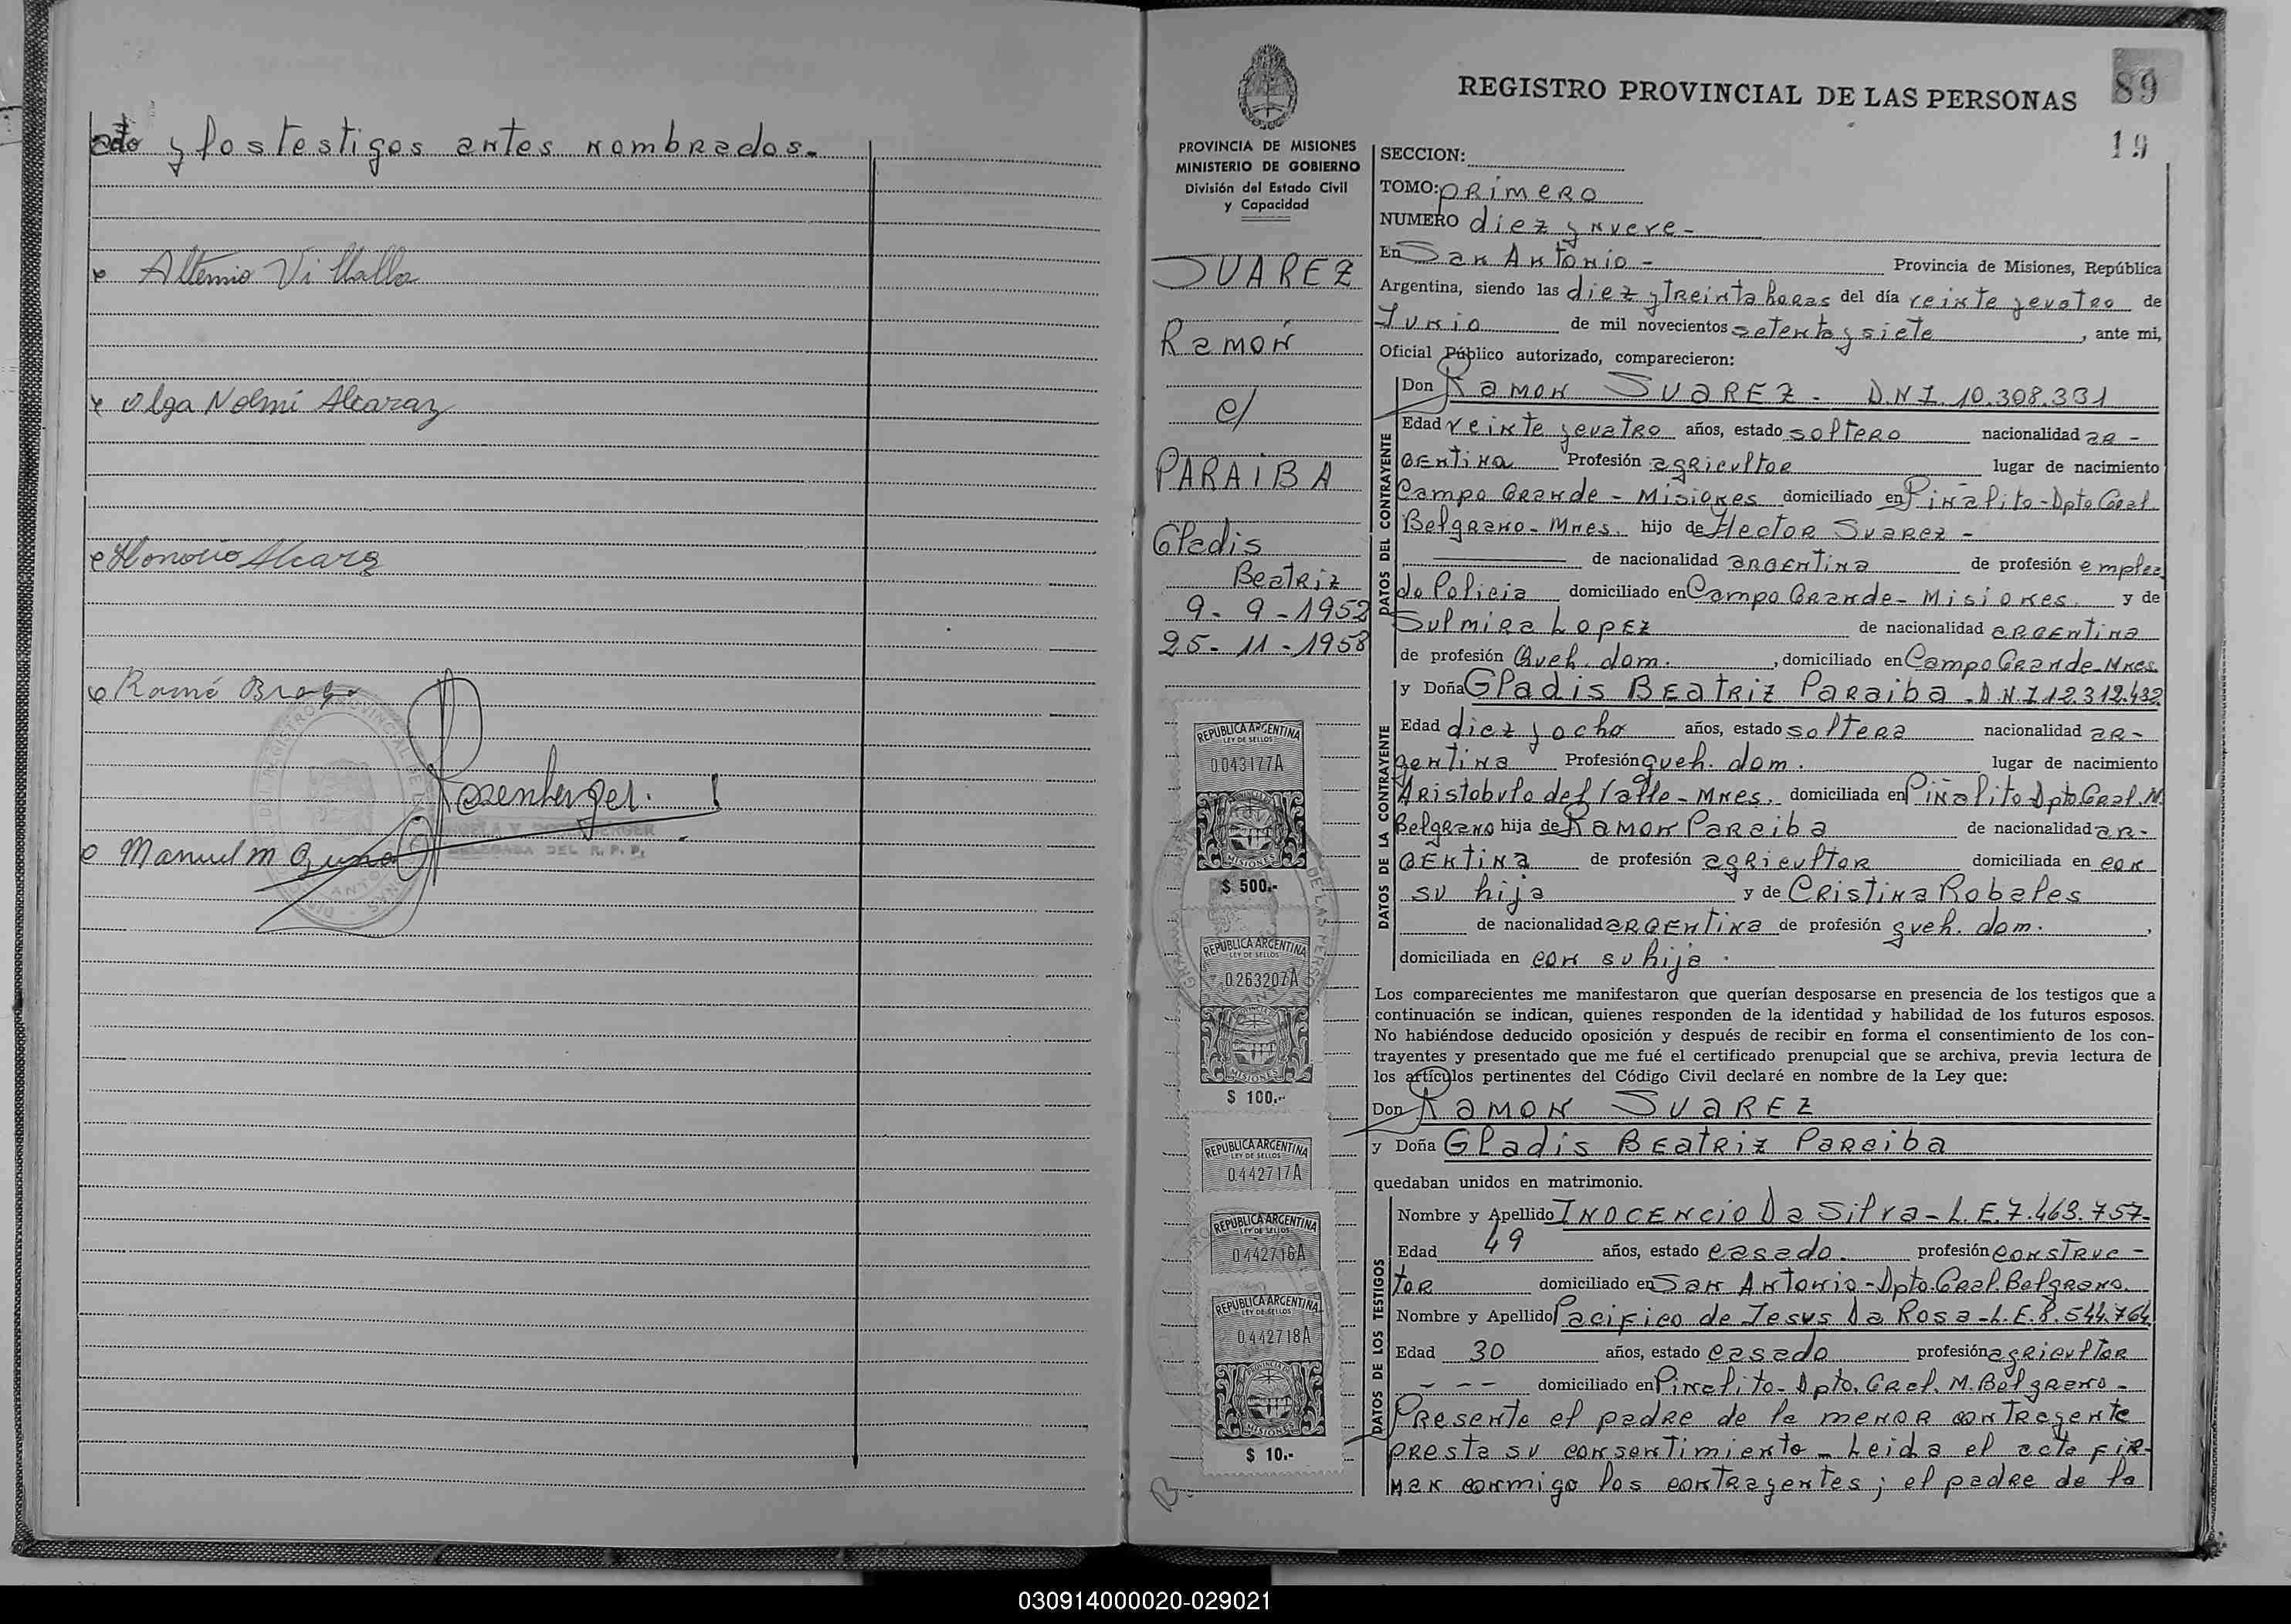 acto y los testigos antes nombrados.-
Altemio Villalba
Olga Nelmi Alcaraz
Honorio Alcaraz
Ramó Braga
Rosenberger.
DELEGADA DEL R. P. P.
Manuel M
89
REGISTRO PROVINCIAL DE LAS PERSONAS
19
PROVINCIA DE MISIONES
MINISTERIO DE GOBIERNO
División del Estado Civil
y Capacidad
SUAREZ
Ramón
c/
PARAIBA
Gladis
Beatriz
9-9-1952
25-11-1958
REPUBLICA ARGENTINA
LEY DE SELLOS
0043177A
MISIONES
$ 500.-
REPUBLICA ARGENTINA
LEY DE SELLOS
0263207A
MISIONES
$ 100.-
REPUBLICA ARGENTINA
LEY DE SELLOS
0442717A
REPUBLICA ARGENTINA
LEY DE SELLOS
0442716A
REPUBLICA ARGENTINA
LEY DE SELLOS
0442718A
MISIONES
$ 10.-
SECCION:
TOMO: primero
NUMERO diez y nueve-
En San Antonio - Provincia de Misiones, República
Argentina, siendo las diez y treinta horas del día veinte y cuatro de
Junio de mil novecientos setenta y siete, ante mi,
Oficial Público autorizado, comparecieron:
DATOS DEL CONTRAYENTE
Don Ramon SUAREZ - D.N.I. 10.308.331
Edad veinte y cuatro años, estado soltero nacionalidad ar-
gentina Profesión agricultor lugar de nacimiento
Campo Grande - Misiones domiciliado en Piñalito - Dpto Gral.
Belgrano - Mnes. hijo de Hector Suarez -
de nacionalidad argentina de profesión emplea
do Policia domiciliado en Campo Grande - Misiones. y de
Sulmira Lopez de nacionalidad argentina
de profesión Queh. dom. , domiciliado en Campo Grande - Mnes.
DATOS DE LA CONTRAYENTE
y Doña Gladis Beatriz Paraiba - D.N.I. 12.312.432
Edad diez y ocho años, estado soltera nacionalidad ar-
gentina Profesión queh. dom. lugar de nacimiento
Aristobulo del Valle - Mnes. domiciliada en Piñalito Dpto. Gral. M.
Belgrano hija de Ramon Paraiba de nacionalidad ar-
gentina de profesión agricultor domiciliada en con
su hija y de Cristina Robales
de nacionalidad argentina de profesión queh. dom. ,
domiciliada en con su hija.
Los comparecientes me manifestaron que querían desposarse en presencia de los testigos que a
continuación se indican, quienes responden de la identidad y habilidad de los futuros esposos.
No habiéndose deducido oposición y después de recibir en forma el consentimiento de los con-
trayentes y presentado que me fué el certificado prenupcial que se archiva, previa lectura de
los artículos pertinentes del Código Civil declaré en nombre de la Ley que:
Don Ramon SUAREZ
y Doña Gladis Beatriz Paraiba
quedaban unidos en matrimonio.
DATOS DE LOS TESTIGOS
Nombre y Apellido Inocencio Da Silva - L.E. 7.463.757-
Edad 49 años, estado casado. profesión construc-
tor domiciliado en San Antonio - Dpto. Gral. Belgrano.
Nombre y Apellido Pacifico de Jesus Da Rosa - L.E. 8.544.764
Edad 30 años, estado casado profesión agricultor
--- domiciliado en Pinalito - Dpto. Gral. M. Belgrano -
Presente el padre de la menor contrayente
presta su consentimiento - Leida el acta fir-
man conmigo los contrayentes; el padre de la
030914000020-029021